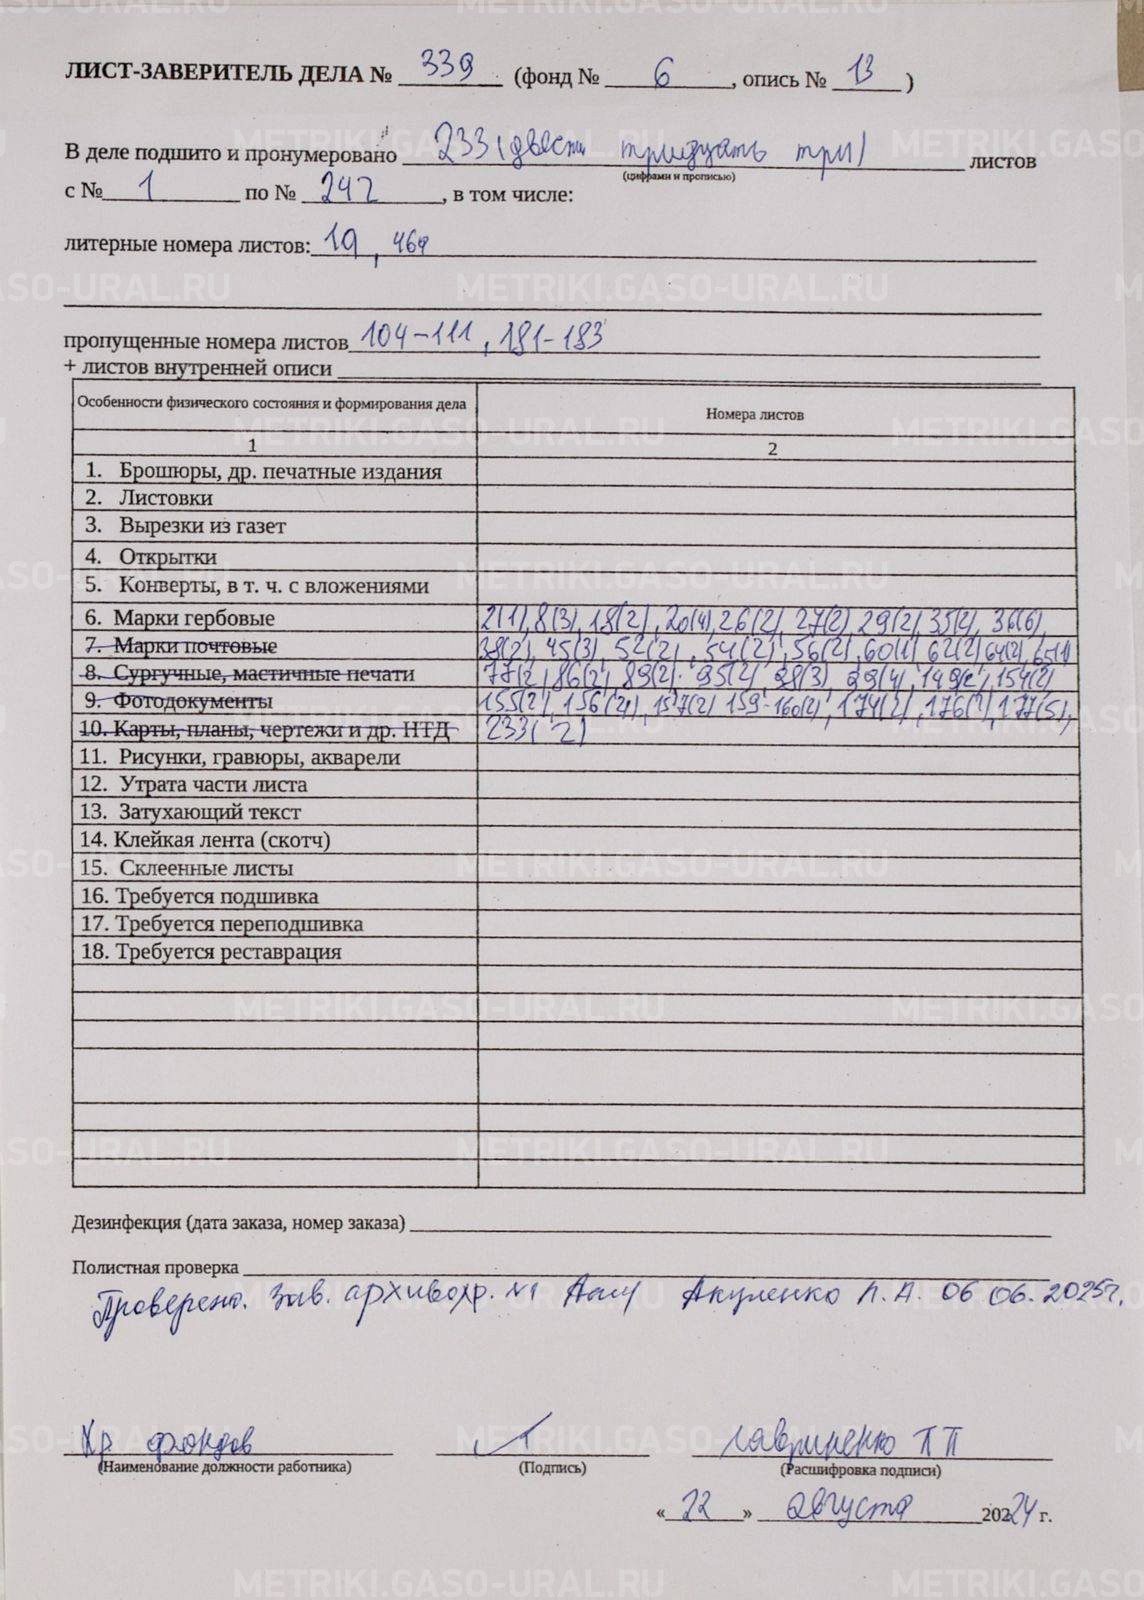 ЛИСТ-ЗАВЕРИТЕЛЬ ДЕЛА № 339 (фонд № 6, опись № 13)
В деле подшито и пронумеровано 233 (двести тридцать три) листов
(цифрами и прописью)
с № 1 по № 242, в том числе:
литерные номера листов: 1а, 46а
пропущенные номера листов 104-111, 181-183
+ листов внутренней описи
Особенности физического состояния и формирования дела Номера листов
1 2
1. Брошюры, др. печатные издания
2. Листовки
3. Вырезки из газет
4. Открытки
5. Конверты, в т. ч. с вложениями
6. Марки гербовые 2(1), 8(3), 18(2), 20(4), 26(2), 27(2), 29(2), 35(2), 36(6),
7. Марки почтовые 38(2), 45(3), 52(2), 54(2), 56(2), 60(1), 62(2), 64(2), 65(1)
8. Сургучные, мастичные печати 77(2, 86(2, 89(2). 95(2) 28(3), 29(4), 149(2, 154(2)
9. Фотодокументы 155(2), 157(2) 159-160(2), 174(2), 177(5),
10. Карты, планы, чертежи и др. НТД 233(2)
11. Рисунки, гравюры, акварели
12. Утрата части листа
13. Затухающий текст
14. Клейкая лента (скотч)
15. Склеенные листы
16. Требуется подшивка
17. Требуется переподшивка
18. Требуется реставрация
Дезинфекция (дата заказа, номер заказа)
Полистная проверка
Проверено. Зав. архивохр. №1 Акуленко Л.А. 06.06.2025г.
Хр фондов Гавриненко ПП
(Наименование должности работника) (Подпись) (Расшифровка подписи)
«22» августа 2024 г.
METRIKI.GASO-URAL.RU